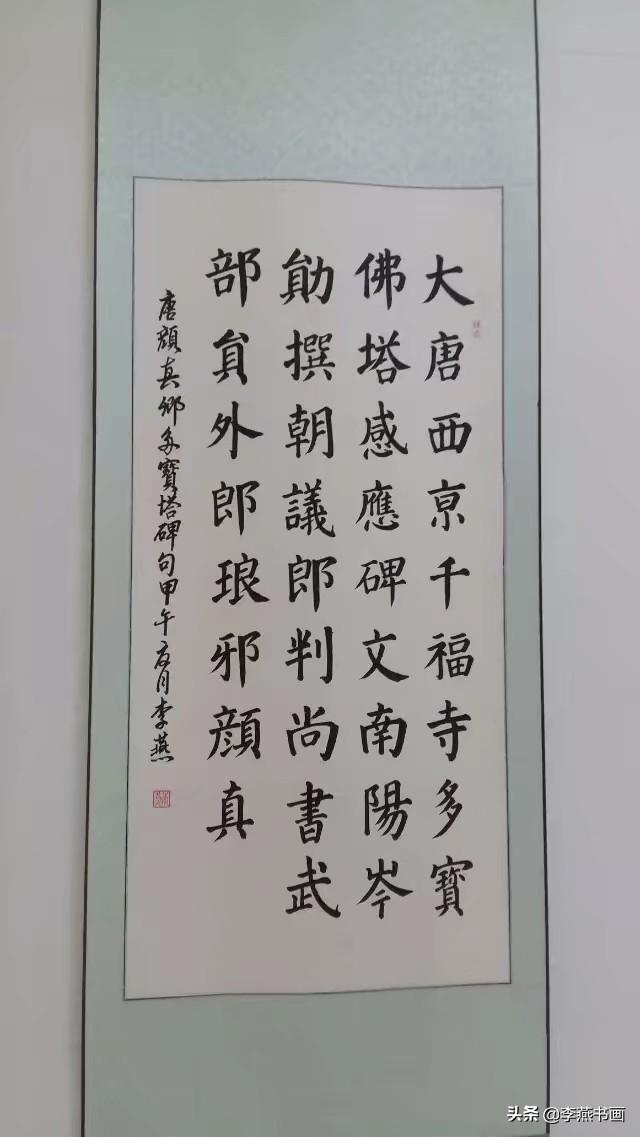 大唐西京千福寺多寶
佛塔感應碑文南陽岑
勛撰朝議郎判尚書武
部員外郎琅邪顏真
唐顏真卿多寶塔碑句甲午夏月李燕
头条 @李燕书画